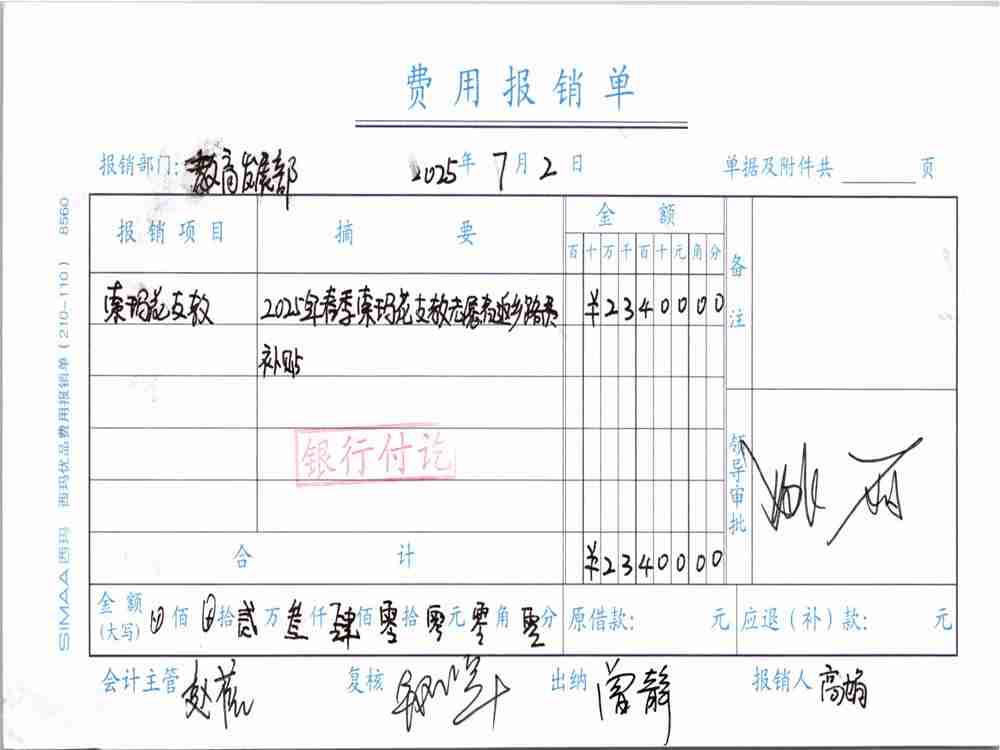 费用报销单
报销部门:教育发展部 2025年7月2日 单据及附件共 页
报销项目 摘要 金额 备注
百十万千百十元角分
索玛花支教 2025年春季索玛花支教志愿者返乡路费 ¥2340000
补贴
银行付讫
领导审批
合计 ¥2340000
金额(大写) 佰 拾贰万叁仟肆佰零拾零元零角零分 原借款: 元 应退(补)款: 元
会计主管 复核 出纳 曾静 报销人 高娟
SIMAA西玛 西玛优品费用报销单(210-110) 8560